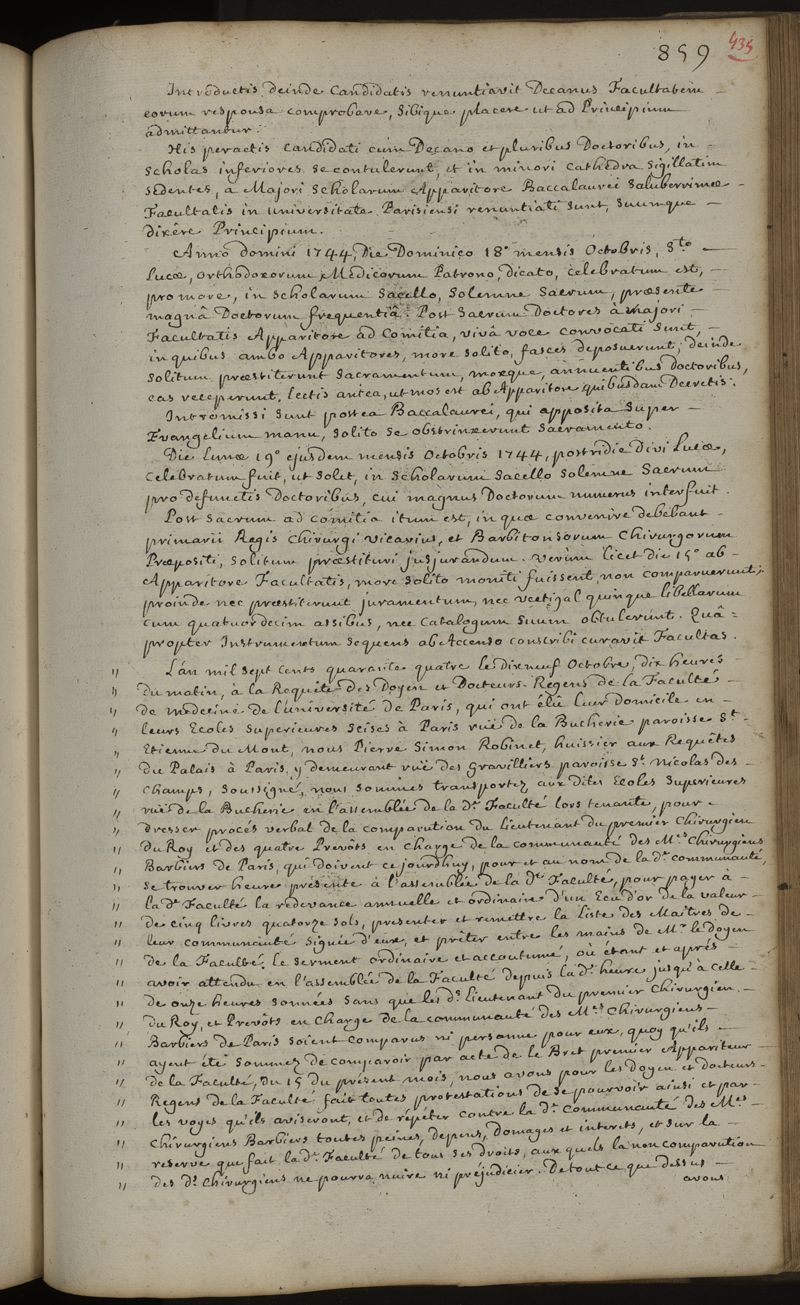 859 435
Introductis deinde Candidatis renuntiavit Decanus Facultatem
eorum responsa comprobare, Sibique placere ut ad Principium
admittantur.
His peractis Candidati cum Decano et pluribus Doctoribus, in
Scholas inferiores se contulerunt, et in minori Cathedra Sigillatim
Sedentes, a Majori Scholarum Apparitore Baccalaurei Saluberrimæ
Facultatis in Universitate Parisiensi renuntiati sunt, suumque
dixêre Principium.
Anno domini 1744, Die Dominico 18° mensis Octobris, Sto
Lucæ, Orthodoxorum Medicorum Patrono, dicato, celebratum est,
pro more, in Scholarum Sacello, Solemne Sacrum, præsente
magnâ Doctorum frequentiâ. Post Sacrum Doctores à majori
Facultatis Apparitore ad Comitia, vivâ voce convocati sunt,
in quibus ambo Apparitores, more solito, fasces deposuerunt, deinde
Solitum præstiterunt Sacramentum, moxque, annuentibus doctoribus,
eas receperunt, lectis antea, ut mos est ab Apparitore quibusdam Decretis.
Intromissi sunt postea Baccalaurei, qui apposita super
Evangelium manu, solito se obstrinxerunt Sacramento.
Die Lunæ 19° ejusdem mensis Octobris 1744, postridie divi Lucæ,
Celebratum fuit, ut solet, in Scholarum Sacello Solemne Sacrum
pro defunctis Doctoribus, cui magnus Doctorum numerus interfuit.
Post Sacrum ad comitia itum est, in quæ convenire debebant
primarii Regis Chirurgi vicarius, et Barbitonsorum Chirurgorum
Præpositi, Solitum præstituri jusjurandum. Verùm licet die 15° ab
Apparitore Facultatis, more solito moniti fuissent, non comparuerunt;
proinde nec præstiterunt juramentum, nec vectigal quinque libellarum
cum quatuordecim assibus, nec Catalogum Suum obtulerunt. Quâ=
propter Instrumentum Sequens ab Accenso conscribi curavit Facultas.
" L'an mil sept cents quarante quatre le dixneuf Octobre, dix heures
" du matin, à la Requête des Doyen et Docteurs-Regens de la Faculté
" de medecine de l'université de Paris, qui ont élu leur domicile en
" leurs Ecoles Superieures Scises à Paris ruë de la Bucherie paroisse St
" Etienne du Mont, nous Pierre Simon Robinet, huissier aux Requêtes
" du Palais à Paris, y demeurant ruë des gravilliers paroisse St Nicolas des
" Champs, Soussigné, nous sommes transportez aux dites Ecoles Superieures
" ruë de la Bucherie en l'assemblée de la de Faculté lors tenante, pour
" dresser procés verbal de la comparution du Lieutenant du premier Chirurgien
" du Roy et des quatre Prevôts en charge de la communauté des Mes Chirurgiens
" Barbiers de Paris, qui doivent ce jourdhuy, pour et au nom de la de communauté,
" se trouver heure présente à l'assemblée de la de Faculté, pour payer à
" la de Faculté la redevance annuelle et ordinaire d'un Ecu d'or de la valeur
" de cinq livres quatorze sols, presenter et remettre la Liste des Maîtres de
" leur communauté signée d'eux, et prêter entre les mains de Mr le doyen
" de la Faculté, le serment ordinaire et accoutumé, où étant et aprés
" avoir attendu en l'assemblée de la Faculté depuis la de heure jusqu'à celle
" de onze heures sonnées sans que les ds Lieutenant du premier Chirurgien
" du Roy, et Prevôts en charge de la communauté des Mes Chirurgiens
" Barbiers de Paris soient comparus ni personne pour eux, quoy qu'ils
" ayent été sommez de comparoir par acte de le Bret premier Appariteur
" de la Faculté, du 15 du présent mois, nous avons pour les doyen et docteurs
" Regens de la Faculté fait toutes protestations de se pourvoir ainsi et par
" les voyes qu'ils aviseront, et de répéter contre la de communauté des Mes
" Chirurgiens Barbiers toutes peines, depens, domages et interets, et sur la
" reserve que fait la de Faculté de tous ses droits, aux quels la non comparution
" des ds Chirurgiens ne pourra nuire ni préjudicier. De tout ce que dessus
avons